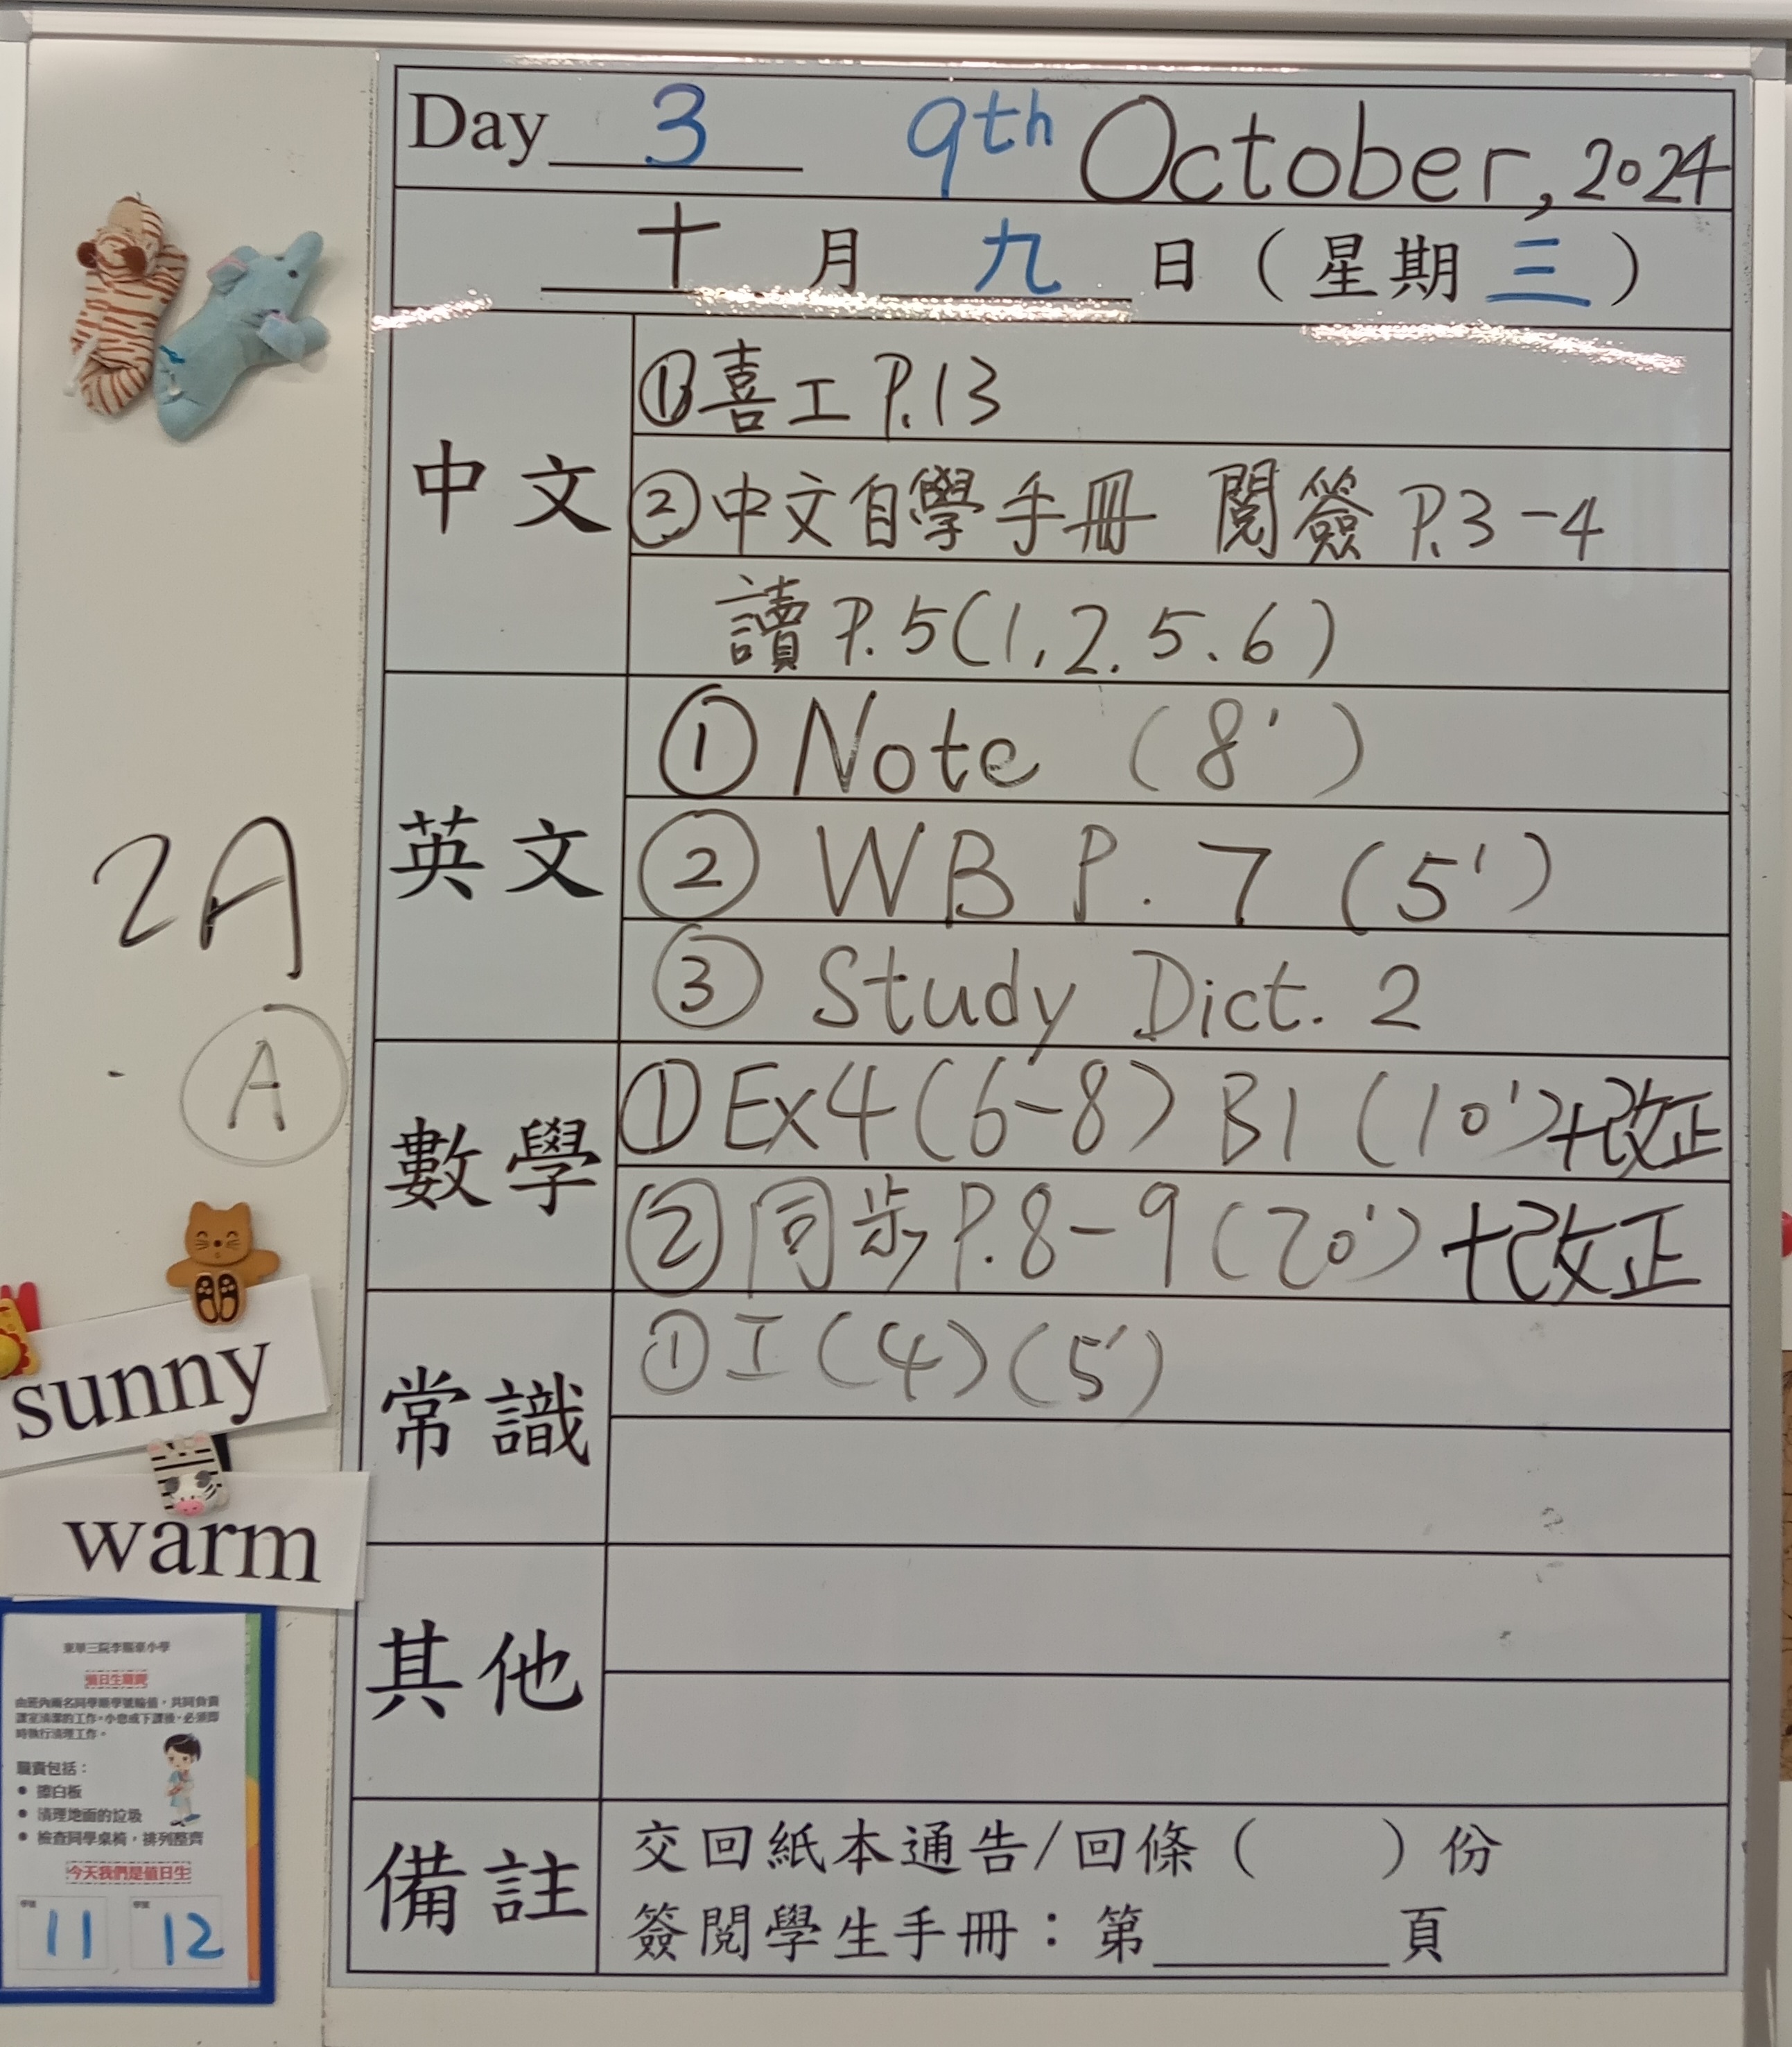 Day 3 9th October, 2024
十 月 九 日 (星期三)
中文
①喜工 P.13
②中文自學手冊 閱簽 P.3-4
讀 P.5(1,2.5、6)
英文
① Note (8')
② WB P.7 (5')
③ Study Dict. 2
數學
① Ex4 (6-8) B1 (10')+改正
② 同步 P.8-9 (20')+改正
常識
① 工(4)(5')
其他
備註
交回紙本通告/回條( )份
簽閱學生手冊：第______頁
2A
A
sunny
warm
東華三院李賜豪小學
值日生職責
由班內兩名同學順學號輪值，共同負責
課室清潔的工作。小息或下課後，必須即
時執行清理工作。
職責包括：
• 擦白板
• 清理地面的垃圾
• 檢查同學桌椅，排列整齊
今天我們是值日生
學號 學號
11 12